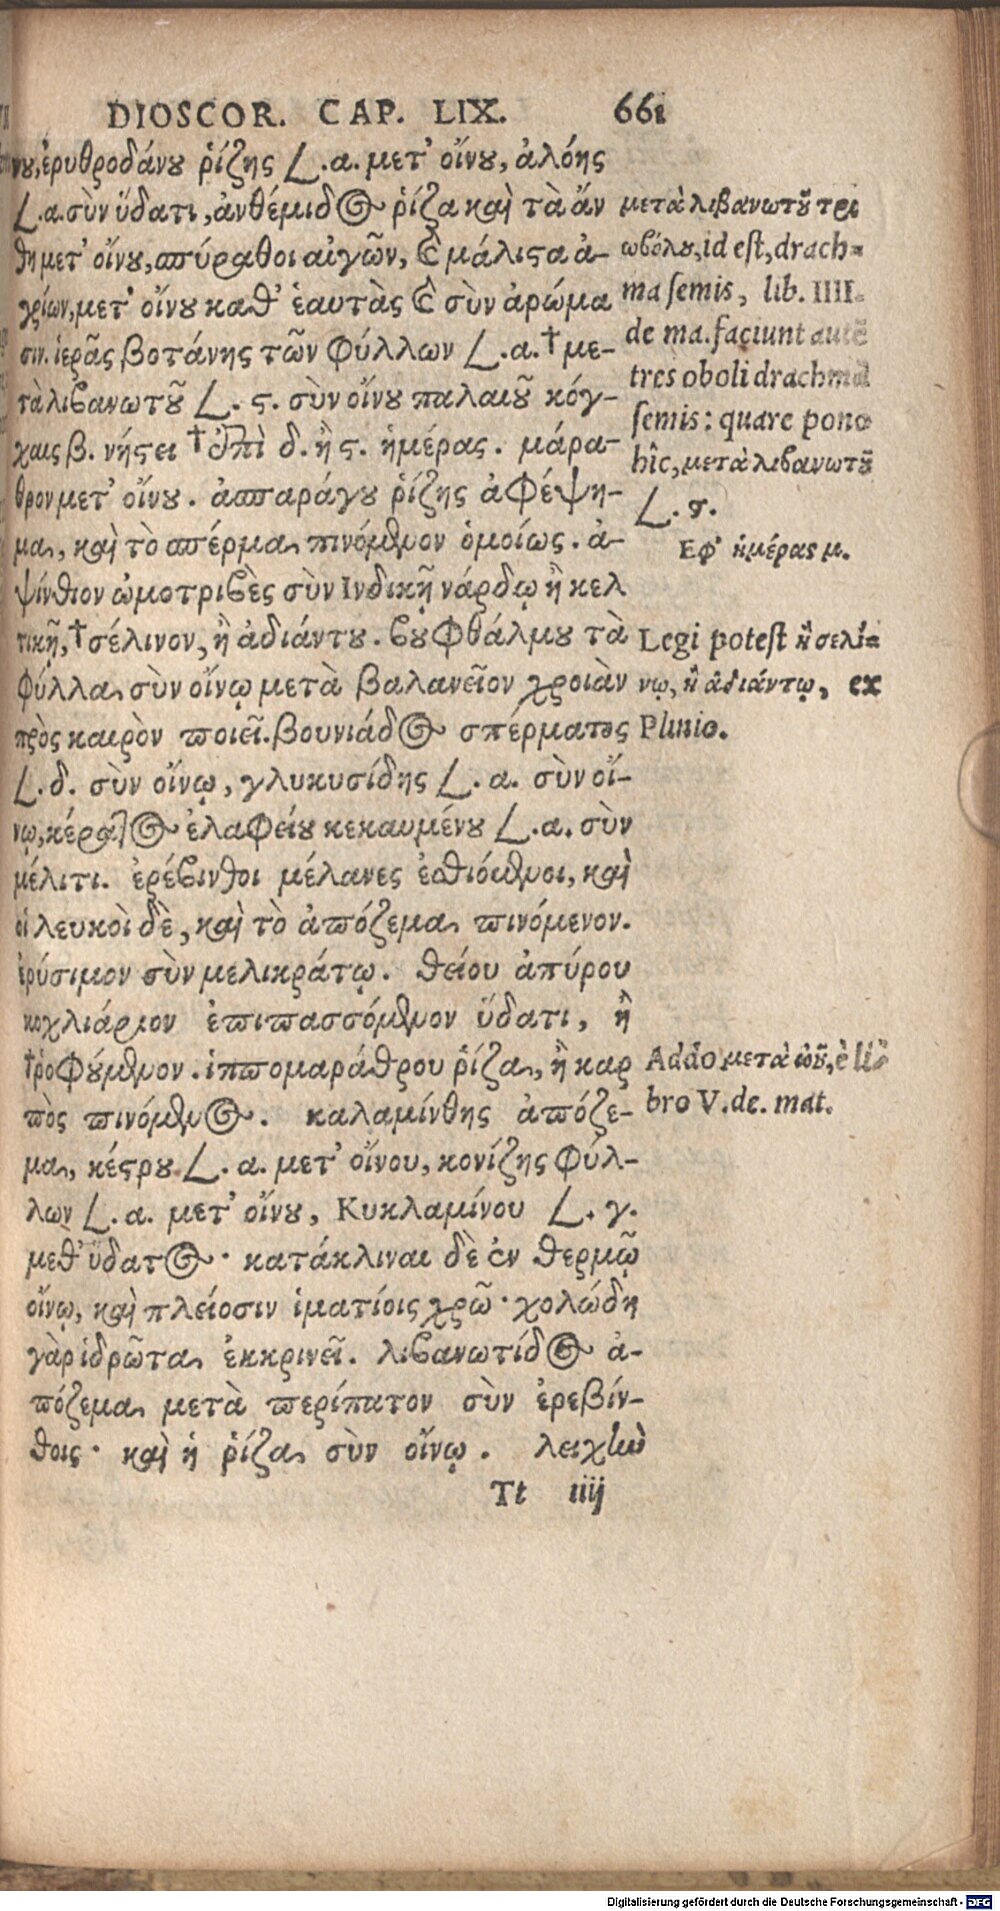 DIOSCOR. CAP. LIX. 661
νου, ἐρυθροδάνου ῥίζης L. α. μετ' οἴνου, ἀλόης
L. α. σὺν ὕδατι, ἀνθέμιδος ῥίζα καὶ τὰ ἄν
θη μετ' οἴνου, σπύραθοι αἰγῶν, καὶ μάλιστα ἀ-
γρίων, μετ' οἴνου καθ' ἑαυτὰς καὶ σὺν ἀρώμα
σιν. ἱερᾶς βοτάνης τῶν φύλλων L. α. † με-
τὰ λιβανωτοῦ L. ϛ. σὺν οἴνου παλαιοῦ κόγ-
χαις β. νήστει † ἐπὶ δ. ἢ ϛ. ἡμέρας. μάρα-
θρον μετ' οἴνου. ἀσπαράγου ῥίζης ἀφέψη-
μα, καὶ τὸ σπέρμα πινόμενον ὁμοίως. ἀ-
ψίνθιον ὠμοτριβὲς σὺν Ἰνδικῇ νάρδῳ ἢ κελ
τικῇ, † σέλινον, ἢ ἀδιάντου. βουφθάλμου τὰ
φύλλα σὺν οἴνῳ μετὰ βαλανεῖον χροιὰν
πρὸς καιρὸν ποιεῖ. βουνιάδος σπέρματος
L. δ. σὺν οἴνῳ, γλυκυσίδης L. α. σὺν οἴ-
νῳ, κέρατος ἐλαφείου κεκαυμένου L. α. σὺν
μέλιτι. ἐρέβινθοι μέλανες ἐσθιόμενοι, καὶ
οἱ λευκοὶ δὲ, καὶ τὸ ἀπόζεμα πινόμενον.
ἐρύσιμον σὺν μελικράτῳ. θείου ἀπύρου
κοχλιάριον ἐπιπασσόμενον ὕδατι, ἢ
† ῥοφούμενον. ἱππομαράθρου ῥίζα, ἢ καρ
πὸς πινόμενος. καλαμίνθης ἀπόζε-
μα, κέστρου L. α. μετ' οἴνου, κονίζης φύλ-
λων L. α. μετ' οἴνου, Κυκλαμίνου L. γ.
μεθ' ὕδατος· κατάκλιναι δὲ ἐν θερμῷ
οἴνῳ, καὶ πλείοσιν ἱματίοις χρῶ· χολώδη
γὰρ ἱδρῶτα ἐκκρινεῖ. λιβανωτίδος ἀ-
πόζεμα μετὰ περίπατον σὺν ἐρεβίν-
θοις· καὶ ἡ ῥίζα σὺν οἴνῳ. λειχὴν
Tt iiij
μετὰ λιβανωτοῦ τρι
ωβόλου, id est, drach-
ma semis, lib. IIII.
de ma. faciunt autē
tres oboli drachmā
semis: quare pono
hîc, μετὰ λιβανωτοῦ
L. ϛ.
Εφ' ἡμέρας μ.
Legi potest ἢ σελί-
νῳ, ἢ ἀδιάντῳ, ex
Plinio.
Addo μετὰ ὠοῦ, è li
bro V. de. mat.
Digitalisierung gefördert durch die Deutsche Forschungsgemeinschaft - DFG